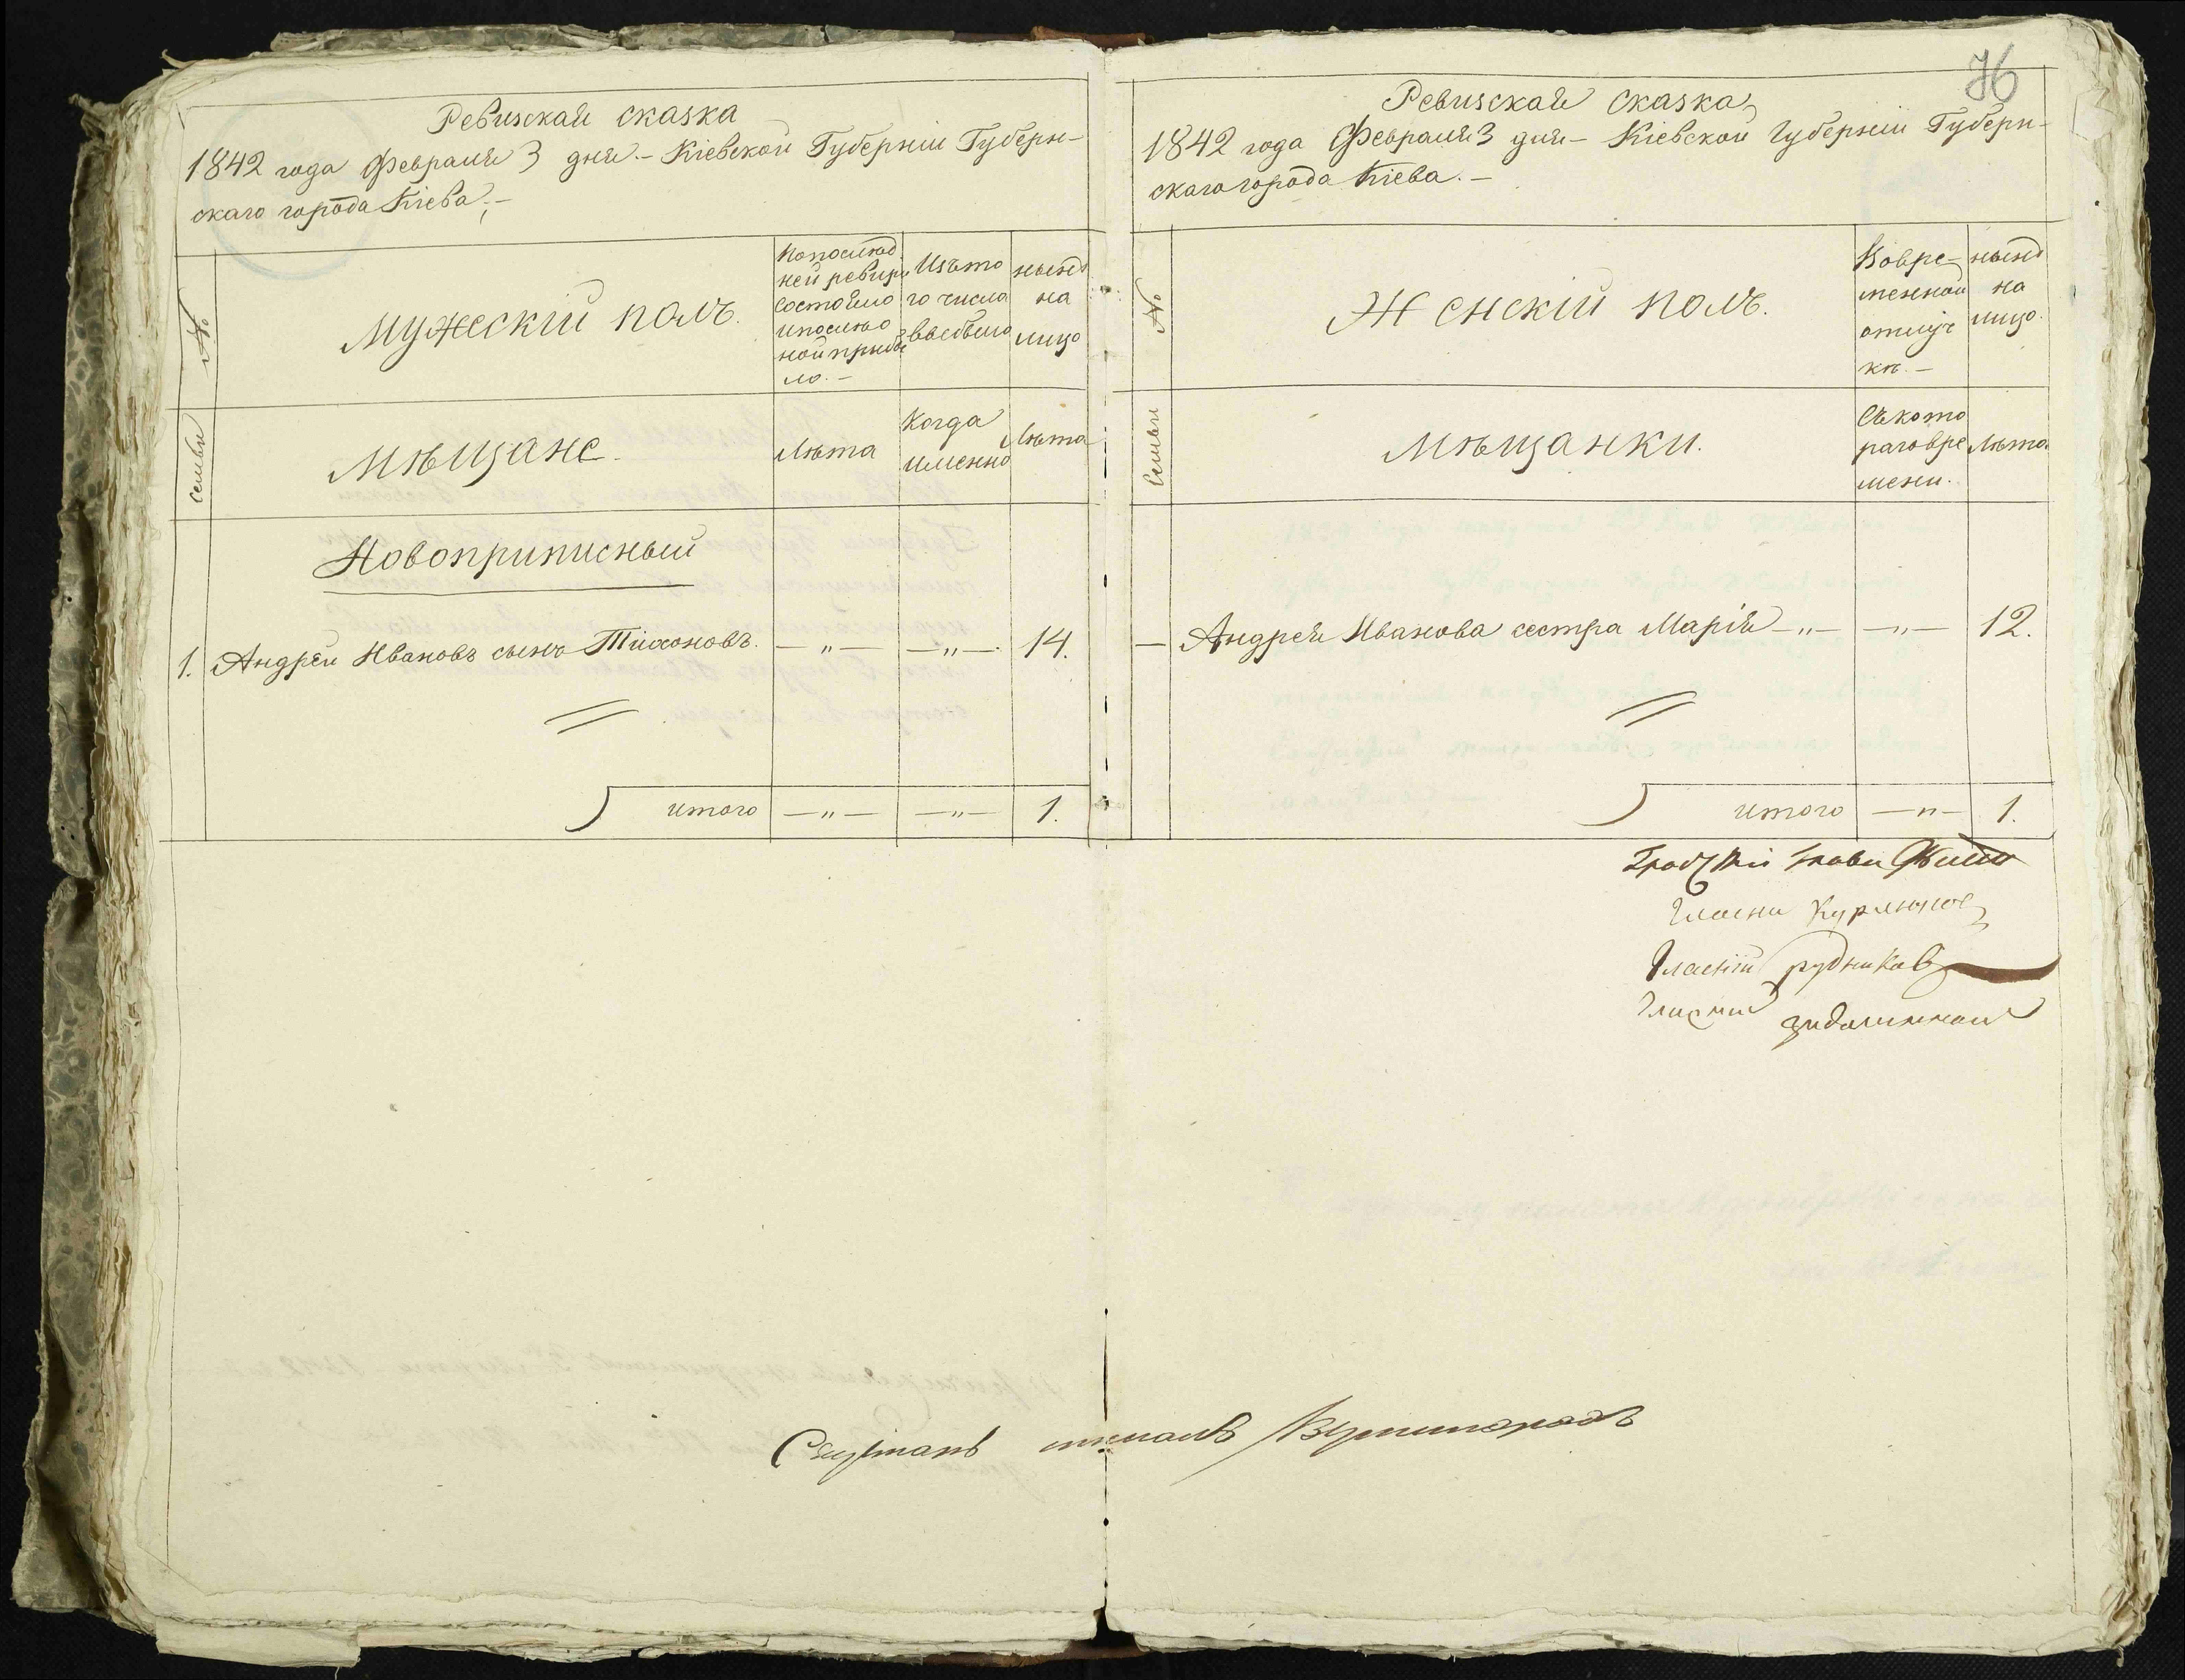 Ревизская сказка
1842 года Февраля 3 дня.- Кіевской Губерніи Губерн-
скаго города Кіева.-
№
семьи
Мужескій полъ.
по послѣд
ней ревизіи
состояло
и послѣ о
ной прибы
ло.-
Изъ то
го числа
выбыло
нынѣ
на
лицо
Мѣщане.
Лѣта
Когда
именно
Лѣта
Новоприписный
1. Андрей Ивановъ сынъ Тихоновъ. -„- -„-. 14.
итого -„- -„- 1.
76
Ревизская сказка
1842 года Февраля 3 дня- Кіевской Губерніи Губерн-
скаго города Кіева.-
№
Семьи
Женскій полъ.
Во вре-
менной
отлуч
кѣ.-
нынѣ
на
лицо.
Мѣщанки.
Съ кото
раго вре
мени.
Лѣта
- Андрея Иванова сестра Марія -„- -„- 12.
итого -„- 1.
Градскій Глава
Гласный
Гласный Рудниковъ
Гласный